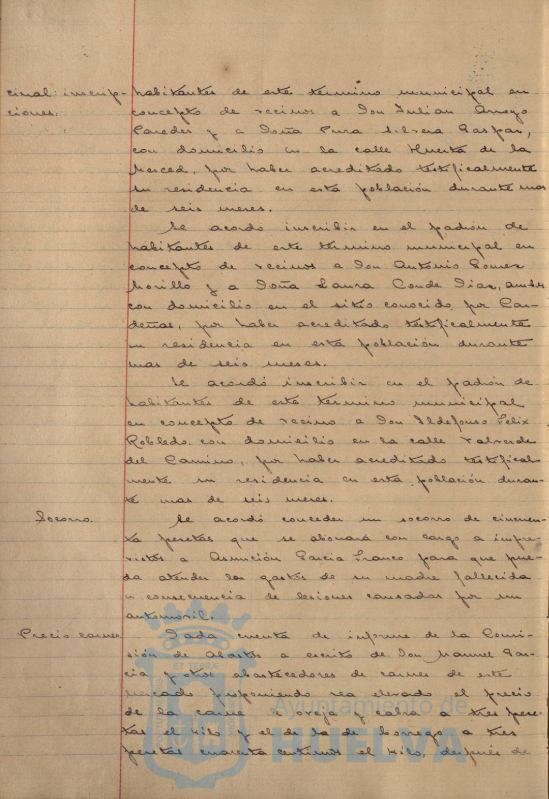 cinal: inscrip-
ciones.
habitantes de este termino municipal en
concepto de vecinos a Don Julian Arroyo
Paredes y a Doña Pura Silvera Gaspar,
con domicilio en la calle Huerta de la
Merced, por haber acreditado testificalmente
su residencia en esta población durante mas
de seis meses.
Se acordo inscribir en el padrón de
habitantes de este termino municipal en
concepto de vecinos a Don Antonio Gomez
Morillo y a Doña Laura Conde Diaz, ambos
con domicilio en el sitio conocido por Car-
deñas, por haber acreditado testificalmente
su residencia en esta población durante
mas de seis meses.
Se acordó inscribir en el padrón de
habitantes de este termino municipal
en concepto de vecino a Don Ildefonso Felix
Robledo con domicilio en la calle Valverde
del Camino, por haber acreditado testifical-
mente su residencia en esta población duran-
te mas de seis meses.
Socorro.
Se acordó conceder un socorro de cincuen-
ta pesetas que se abonará con cargo a impre-
vistos a Asunción Garcia Franco para que pue-
da atender los gastos de su madre fallecida
a consecuencia de lesiones causadas por un
automovil.
Precio carnes.
Dada cuenta de informe de la Comi-
sión de Abastos a escrito de Don Manuel Gar-
cia y otros abastecedores de carnes de este
mercado proponiendo sea elevado el precio
de la carne de oveja y cabra a tres pese-
tas el kilo y el de la de borrego a tres
pesetas cuarenta centimos el kilo, después de
Ayuntamiento de
HUELVA